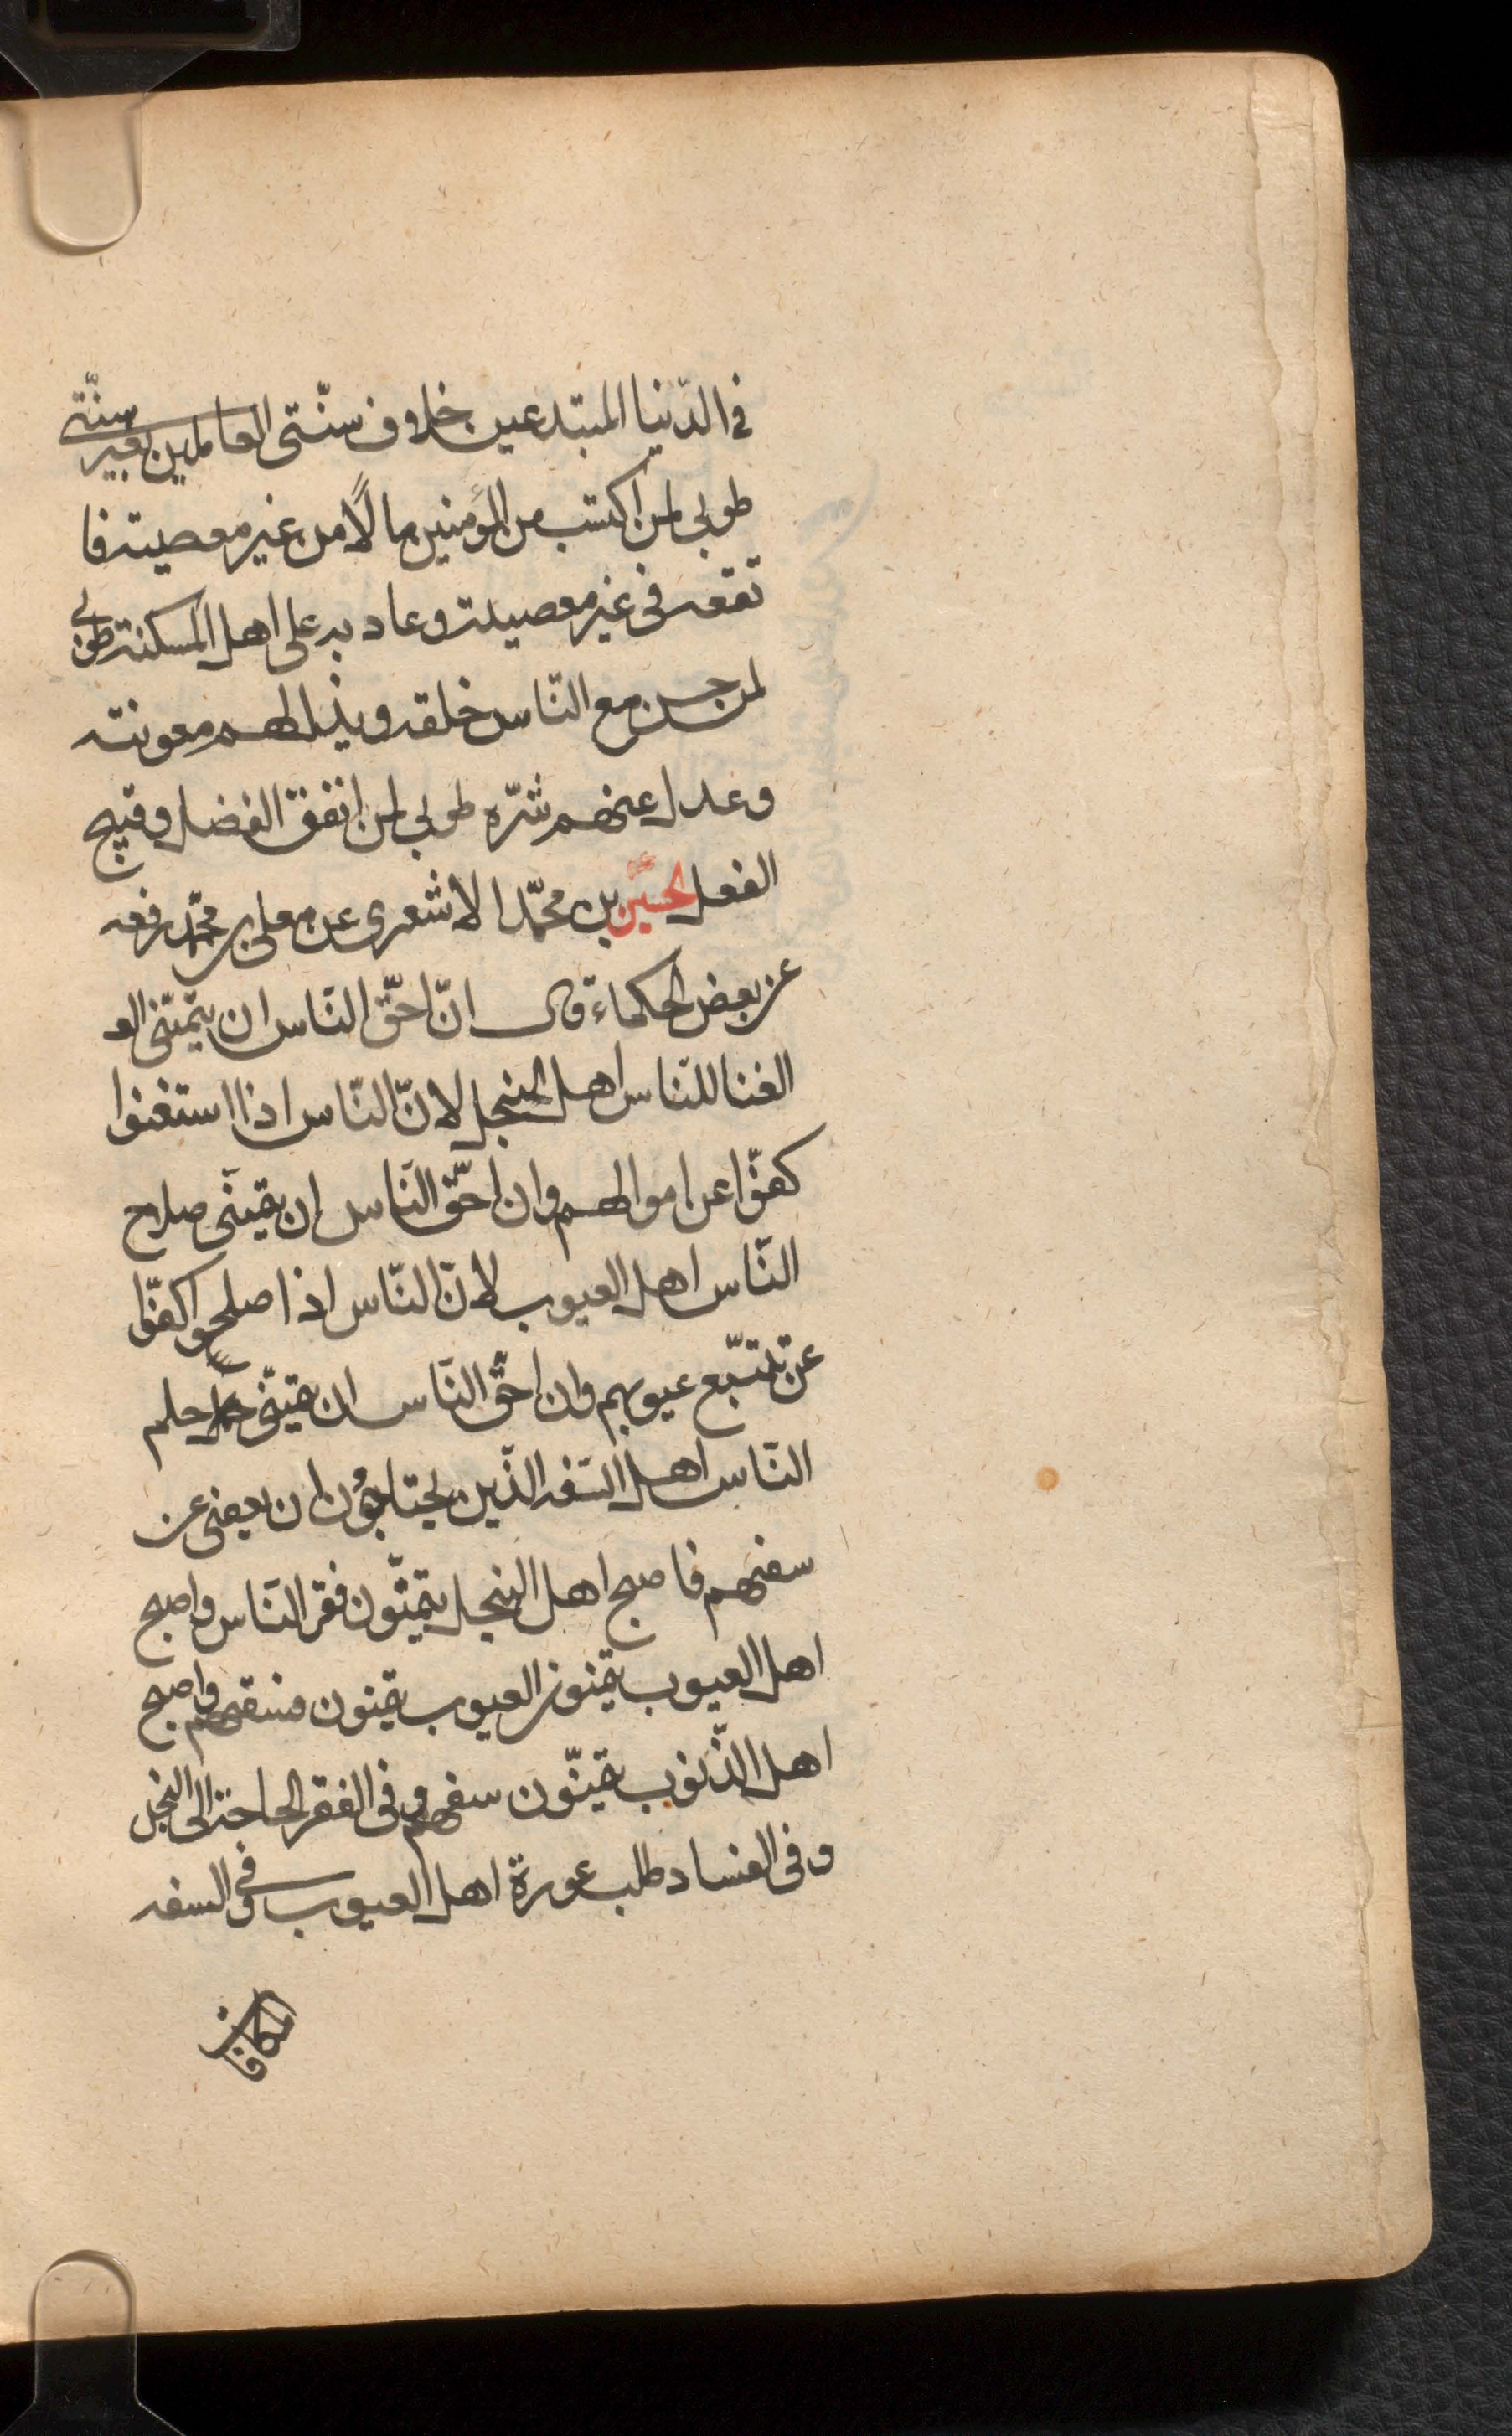 فى الدّنيا المبتدعين خلاف سنّتى العاملين بغير سنّتى
طوبى لمن اكتسب من المؤمنين مالًا من غير معصيته فا
نفقه فى غير معصيته وعاد به على اهل المسكنة طوبى
لمن حسن مع النّاس خلقه وبذل لهم معونته
وعدل عنهم شرّه طوبى لمن انفق الفضل وقبيح
الفعل الحسين بن محمّد الاشعرى عن معلى بن محمّد رفعه
عن بعض الحكماء قال انّ احقّ النّاس ان يتمنّى
الغنا للنّاس اهل البخل لانّ النّاس اذا استغنوا
كفّوا عن اموالهم وان احقّ النّاس ان يتمنّى صلاح
النّاس اهل العيوب لانّ النّاس اذا صلحوا كفّوا
عن تتبّع عيوبهم وان احقّ النّاس ان يتمنّى حلم
النّاس اهل السّفه الّذين يحتاجون ان يعفى عن
سفههم فاصبح اهل البخل يتمنّون فقر النّاس واصبح
اهل العيوب يتمنون العيوب يتمنون فسقهم واصبح
اهل الذّنوب يتمنّون سفههم وفى الفقر الحاجة الى البخل
وفى الفساد طلب عورة اهل العيوب وفى السفه
المكافات